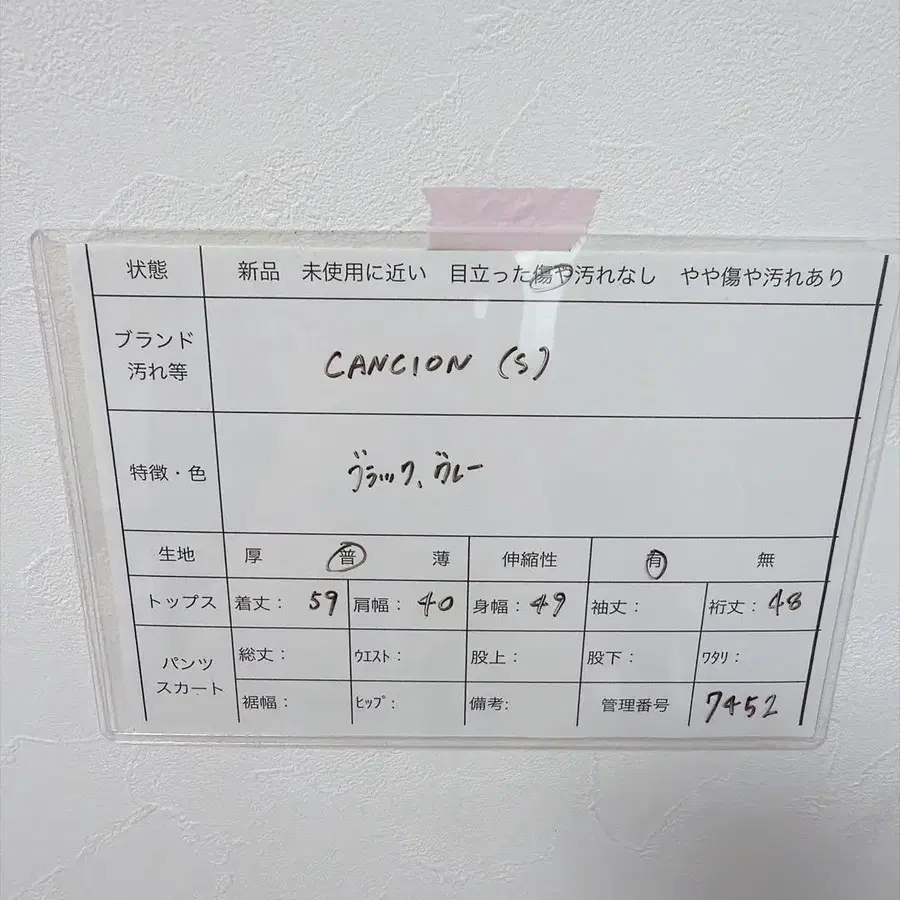 状態 新品 未使用に近い 目立った傷や汚れなし やや傷や汚れあり
ブランド
汚れ等
CANCION (S)
特徴・色 ブラック、グレー
生地 厚 普 薄 伸縮性 有 無
トップス 着丈: 59 肩幅: 40 身幅: 49 袖丈: 裄丈: 48
パンツ
スカート
総丈: ウエスト: 股上: 股下: ワタリ:
裾幅: ヒップ: 備考: 管理番号 7452